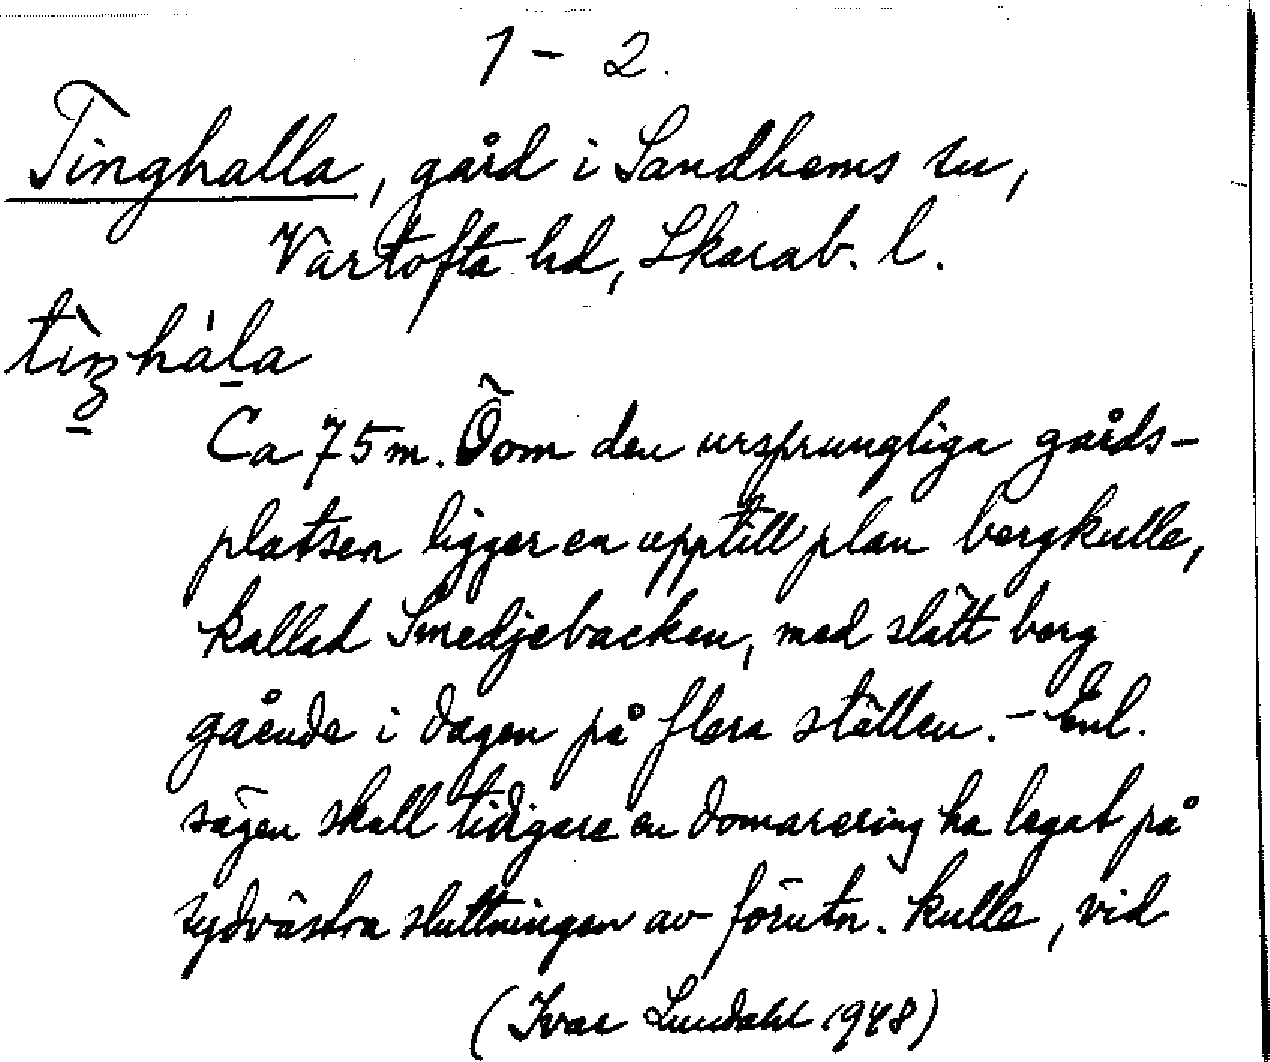 1 – 2.
Tinghalla, gård i Sandhems sn,
Vartofta hd, Skarab. l.
tìŋhála
Ca 75 m. Ö om den ursprungliga gårds-
platsen ligger en upptill plan bergkulle,
kallad Smedjebacken, med slätt berg
gående i dagen på flera ställen. – Enl.
sägen skall tidigare en domarering ha legat på
sydvästra sluttningen av förutn. kulle, vid
(Ivar Lundahl 1948)